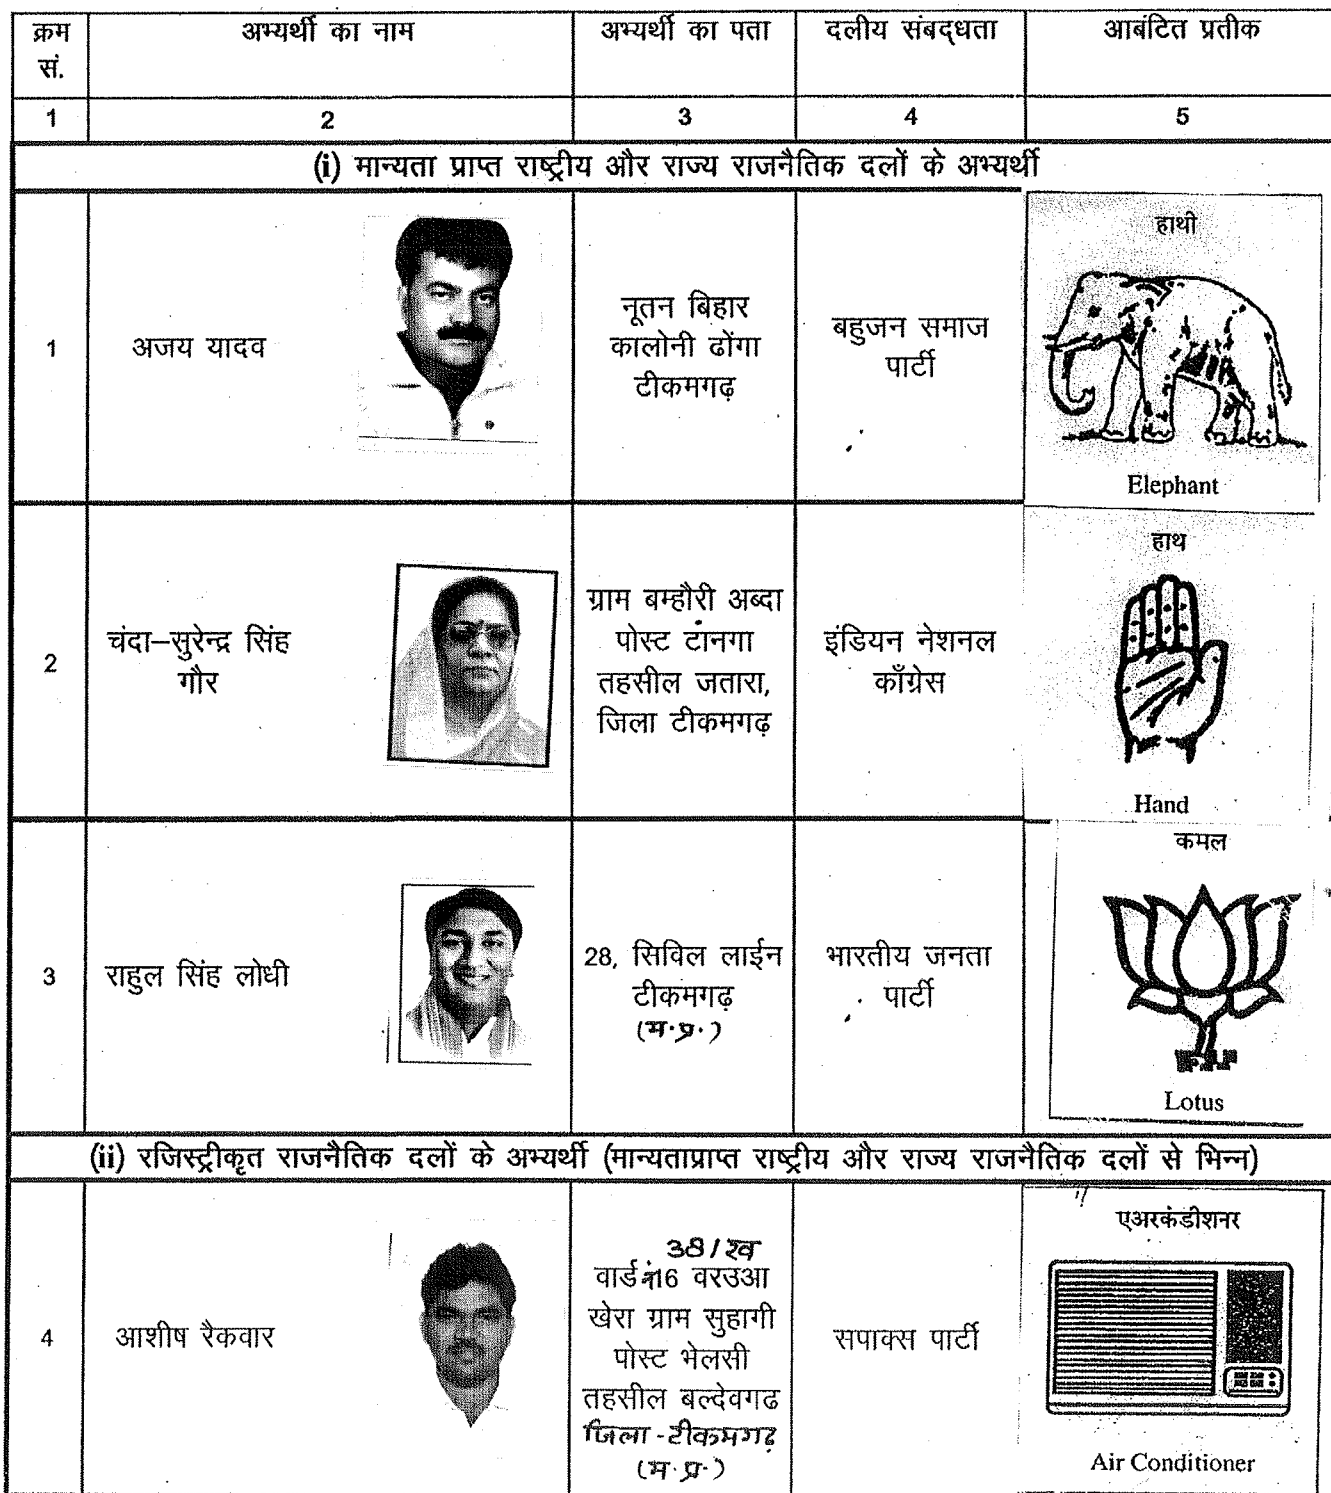 क्रम सं.
अभ्यर्थी का नाम
अभ्यर्थी का पता
दलीय संबद्धता
आबंटित प्रतीक
1
2
3
4
5
(i) मान्यता प्राप्त राष्ट्रीय और राज्य राजनैतिक दलों के अभ्यर्थी
1
अजय यादव
नूतन बिहार
कालोनी ढोंगा
टीकमगढ़
बहुजन समाज
पार्टी
हाथी
Elephant
2
चंदा–सुरेन्द्र सिंह
गौर
ग्राम बम्हौरी अब्दा
पोस्ट टानगा
तहसील जतारा,
जिला टीकमगढ़
इंडियन नेशनल
काँग्रेस
हाथ
Hand
3
राहुल सिंह लोधी
28, सिविल लाईन
टीकमगढ़
(म.प्र.)
भारतीय जनता
पार्टी
कमल
Lotus
(ii) रजिस्ट्रीकृत राजनैतिक दलों के अभ्यर्थी (मान्यताप्राप्त राष्ट्रीय और राज्य राजनैतिक दलों से भिन्न)
4
आशीष रैकवार
38/ख
वार्ड नं 16 वरउआ
खेरा ग्राम सुहागी
पोस्ट भेलसी
तहसील बल्देवगढ
जिला - टीकमगढ़
(म.प्र.)
सपाक्स पार्टी
एअरकंडीशनर
Air Conditioner